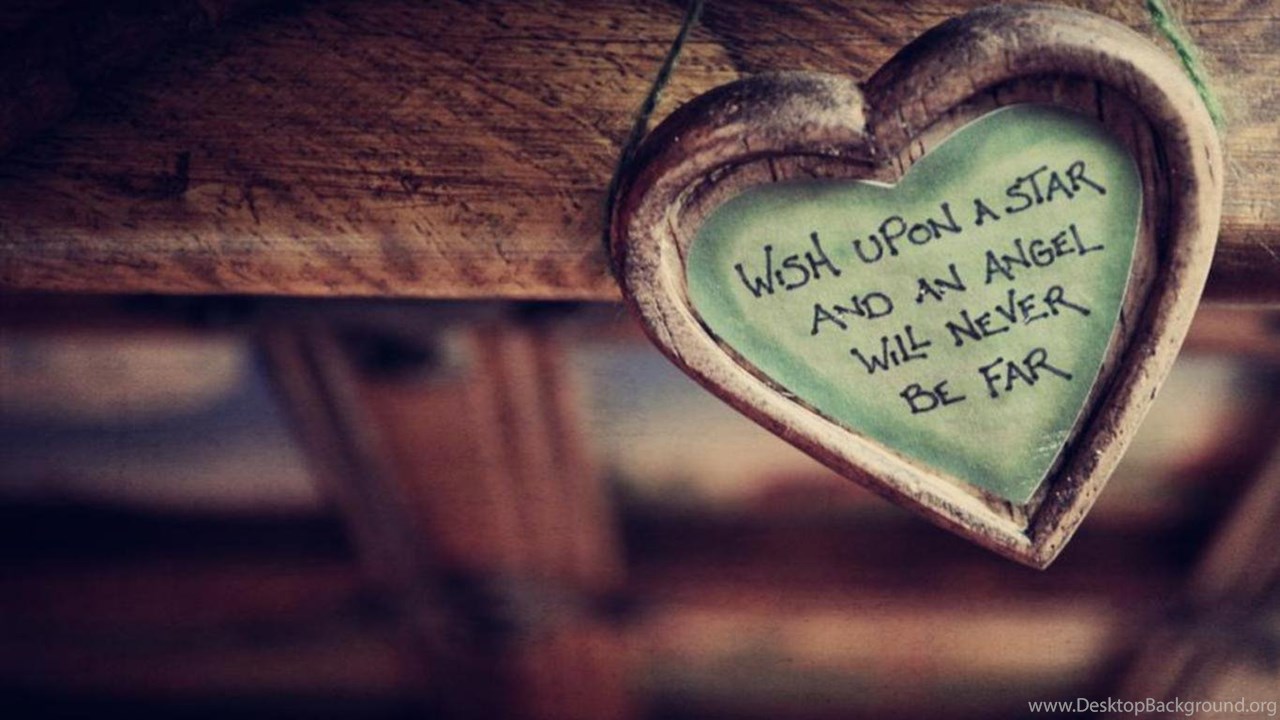 WiSH UPON A STAR
AND AN ANGEL
WiLL NEVER
BE FAR
www.DesktopBackground.org